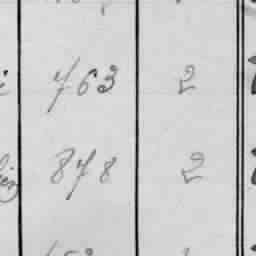 763 2
878 2